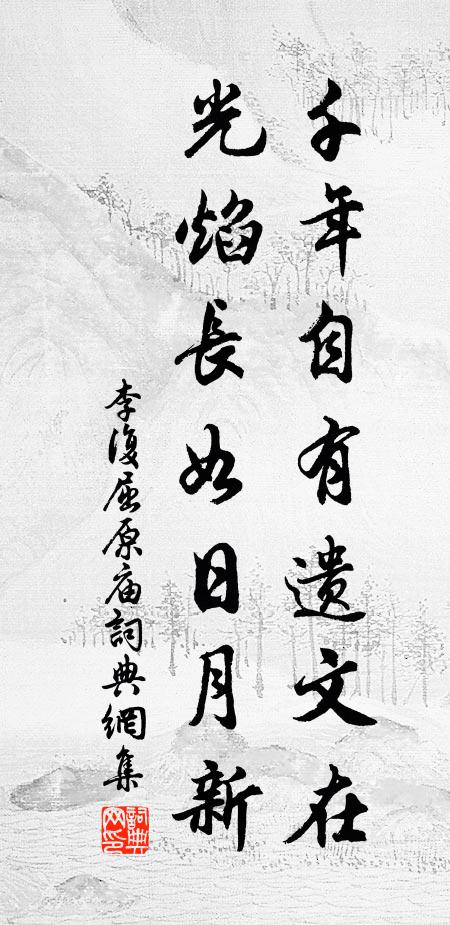 千年自有遺文在
光焰長如日月新
李復屈原庙詞典網集
詞典
网印